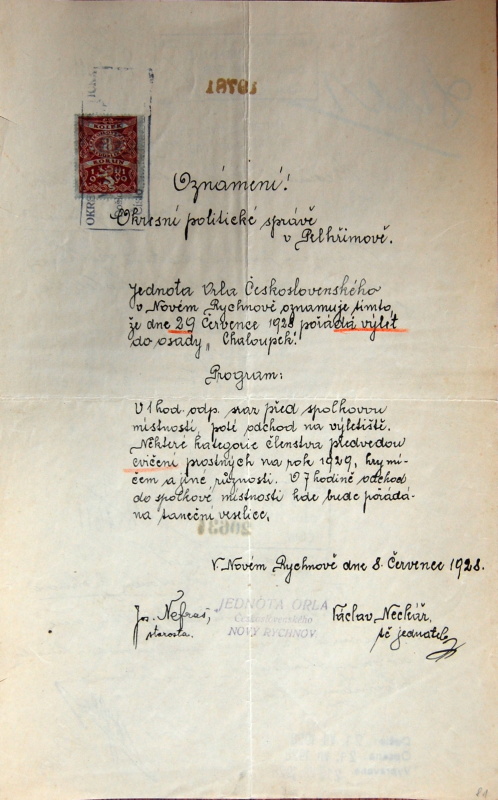 Oznámení!
Okresní politické správě
v Pelhřimově.
Jednota Orla Československého
v Novém Rychnově oznamuje tímto,
že dne 29 Července 1928 pořádá výlet
do osady „Chaloupek."
Program:
V 1 hod. odp. sraz před spolkovou
místností, poté odchod na výletiště.
Některé kategorie členstva předvedou
cvičení prostných na rok 1929, hry mí-
čem a jiné různosti. V 7 hodině odchod
do spolkové místnosti kde bude pořádá-
na taneční veselice.
V Novém Rychnově dne 8. Července 1928.
Jos. Nefraš,
starosta.
"JEDNOTA ORLA
Československého
NOVÝ RYCHNOV
Václav Neckář,
tč jednatel
KOLEK
KORUN
OKRE